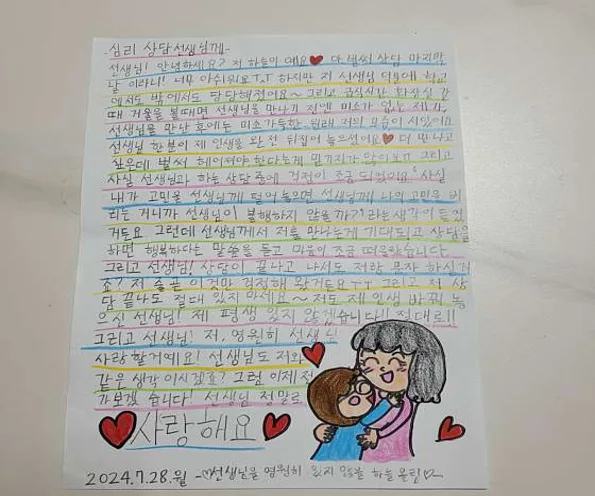 -심리 상담선생님께-
선생님! 안녕하세요? 저 하늘이예요♥ 아 벌써 상담 마지막
날 이라니! 너무 아쉬워요TㅅT 하지만 저 선생님 덕분에 학교
에서도 밖에서도 당당해졌어요~ 그리고 급식실과 화장실 갈
때 거울을 볼때면 선생님을 만나기 전엔 미소가 없는 제가
선생님을 만난 후에는 미소 가득한 원래 저의 모습이 시있어요
선생님 한분이 제 인생을 완전 뒤집어 놓으셨어요♥ 더 만나고
싶은데 벌써 헤어져야 한다는게 믿기지가 않아요!! 그리고
사실 선생님과 하는 상담 중에 걱정이 조금 되었어요 사실
내가 고민을 선생님께 털어 놓으면 선생님께 나의 고민을 버
리는 거니까 선생님이 불행하지 않을까? 라는 생각이 들었
거든요 그런데 선생님께서 저를 만나는게 기대되고 상담을
하면 행복하다는 말씀을 듣고 마음이 조금 떠올랐습니다
그리고 선생님! 상담이 끝나고 나서도 저랑 문자 하실거
죠? 저 슬픈 이것만 걱정해 왔거든요TT 그리고 저 상
담 끝나도 절대 잊지 마세요~ 저도 제 인생 바꿔 놓
으신 선생님! 제 평생 잊지 않겠습니다!! 절대로!!
그리고 선생님! 저, 영원히 선생님
사랑 할거예요! 선생님도 저와
같은 생각 이시겠죠? 그럼 이제 전
가보겠습니다! 선생님 정말로
♥사랑해요♥
2024.7.28.월 -♡선생님을 영원히 잊지 않을 하늘 올림♡-